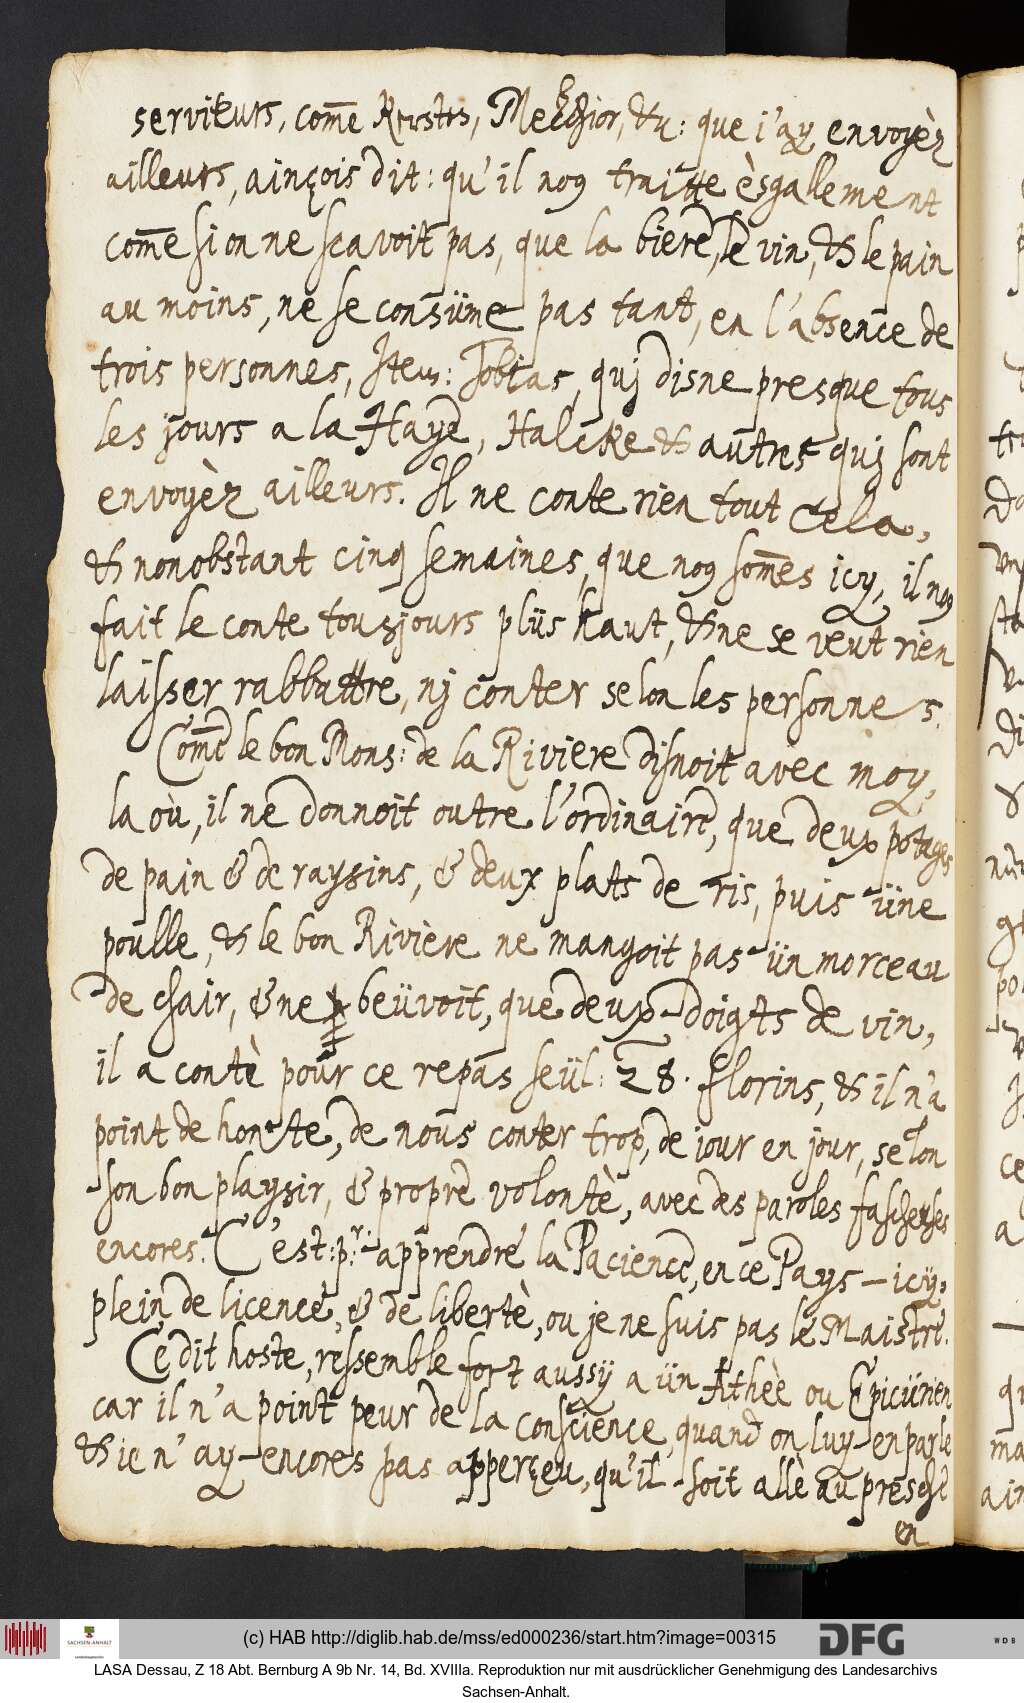 serviteurs, come̅ Kerstes, Melchior, &c: que i'ay envoyèz
ailleurs, ainçois dit: qu'il no9 traitte èsgallement
come̅ si on ne scavoit pas, que la biere, le vin, & le pain
au moins, ne se consüme pas tant, en l'absence de
trois personnes, Item: Tobias, quj disne presque tous
les jours a la Haye, Halcke & autres quj sont
envoyèz ailleurs. Il ne conte rien tout cela,
& nonobstant cinq semaines, que no9 some̅s icy, il no9
fait le conte tousjours plüs haut, & ne se veut rien
laisser rabbattre, nj conter selon les personnes.
Come̅ le bon Mons: de la Riviere disnoit avec moy,
la où, il ne donnoit outre l'ordinaire, que deux potages
de pain & de raysins, & deux plats de ris, puis üne
poulle, & le bon Riviere ne mangoit pas ün morceau
de chair, & ne beüvoit, que deux doigts de vin,
il a contè pour ce repas seül: 28. florins, & il n'a
point de honte, de nous conter trop, de jour en jour, selon
son bon playsir, & propre volontè, avec des paroles fascheuses
encores. C'est: p:r: apprendre la Pacience, en ce Pays-icy,
plein de licence, & de libertè, ou je ne suis pas le Maistre.
Ce dit hoste, ressemble fort aussy a ün Athèe ou Epicürien
car il n'a point peur de la conscience, quand on luy en parle
& ie n'ay encores pas apperçeu, qu'il soit allè au presche
en
(c) HAB http://diglib.hab.de/mss/ed000236/start.htm?image=00315
SACHSEN-ANHALT
DFG
WDB
LASA Dessau, Z 18 Abt. Bernburg A 9b Nr. 14, Bd. XVIIIa. Reproduktion nur mit ausdrücklicher Genehmigung des Landesarchivs
Sachsen-Anhalt.